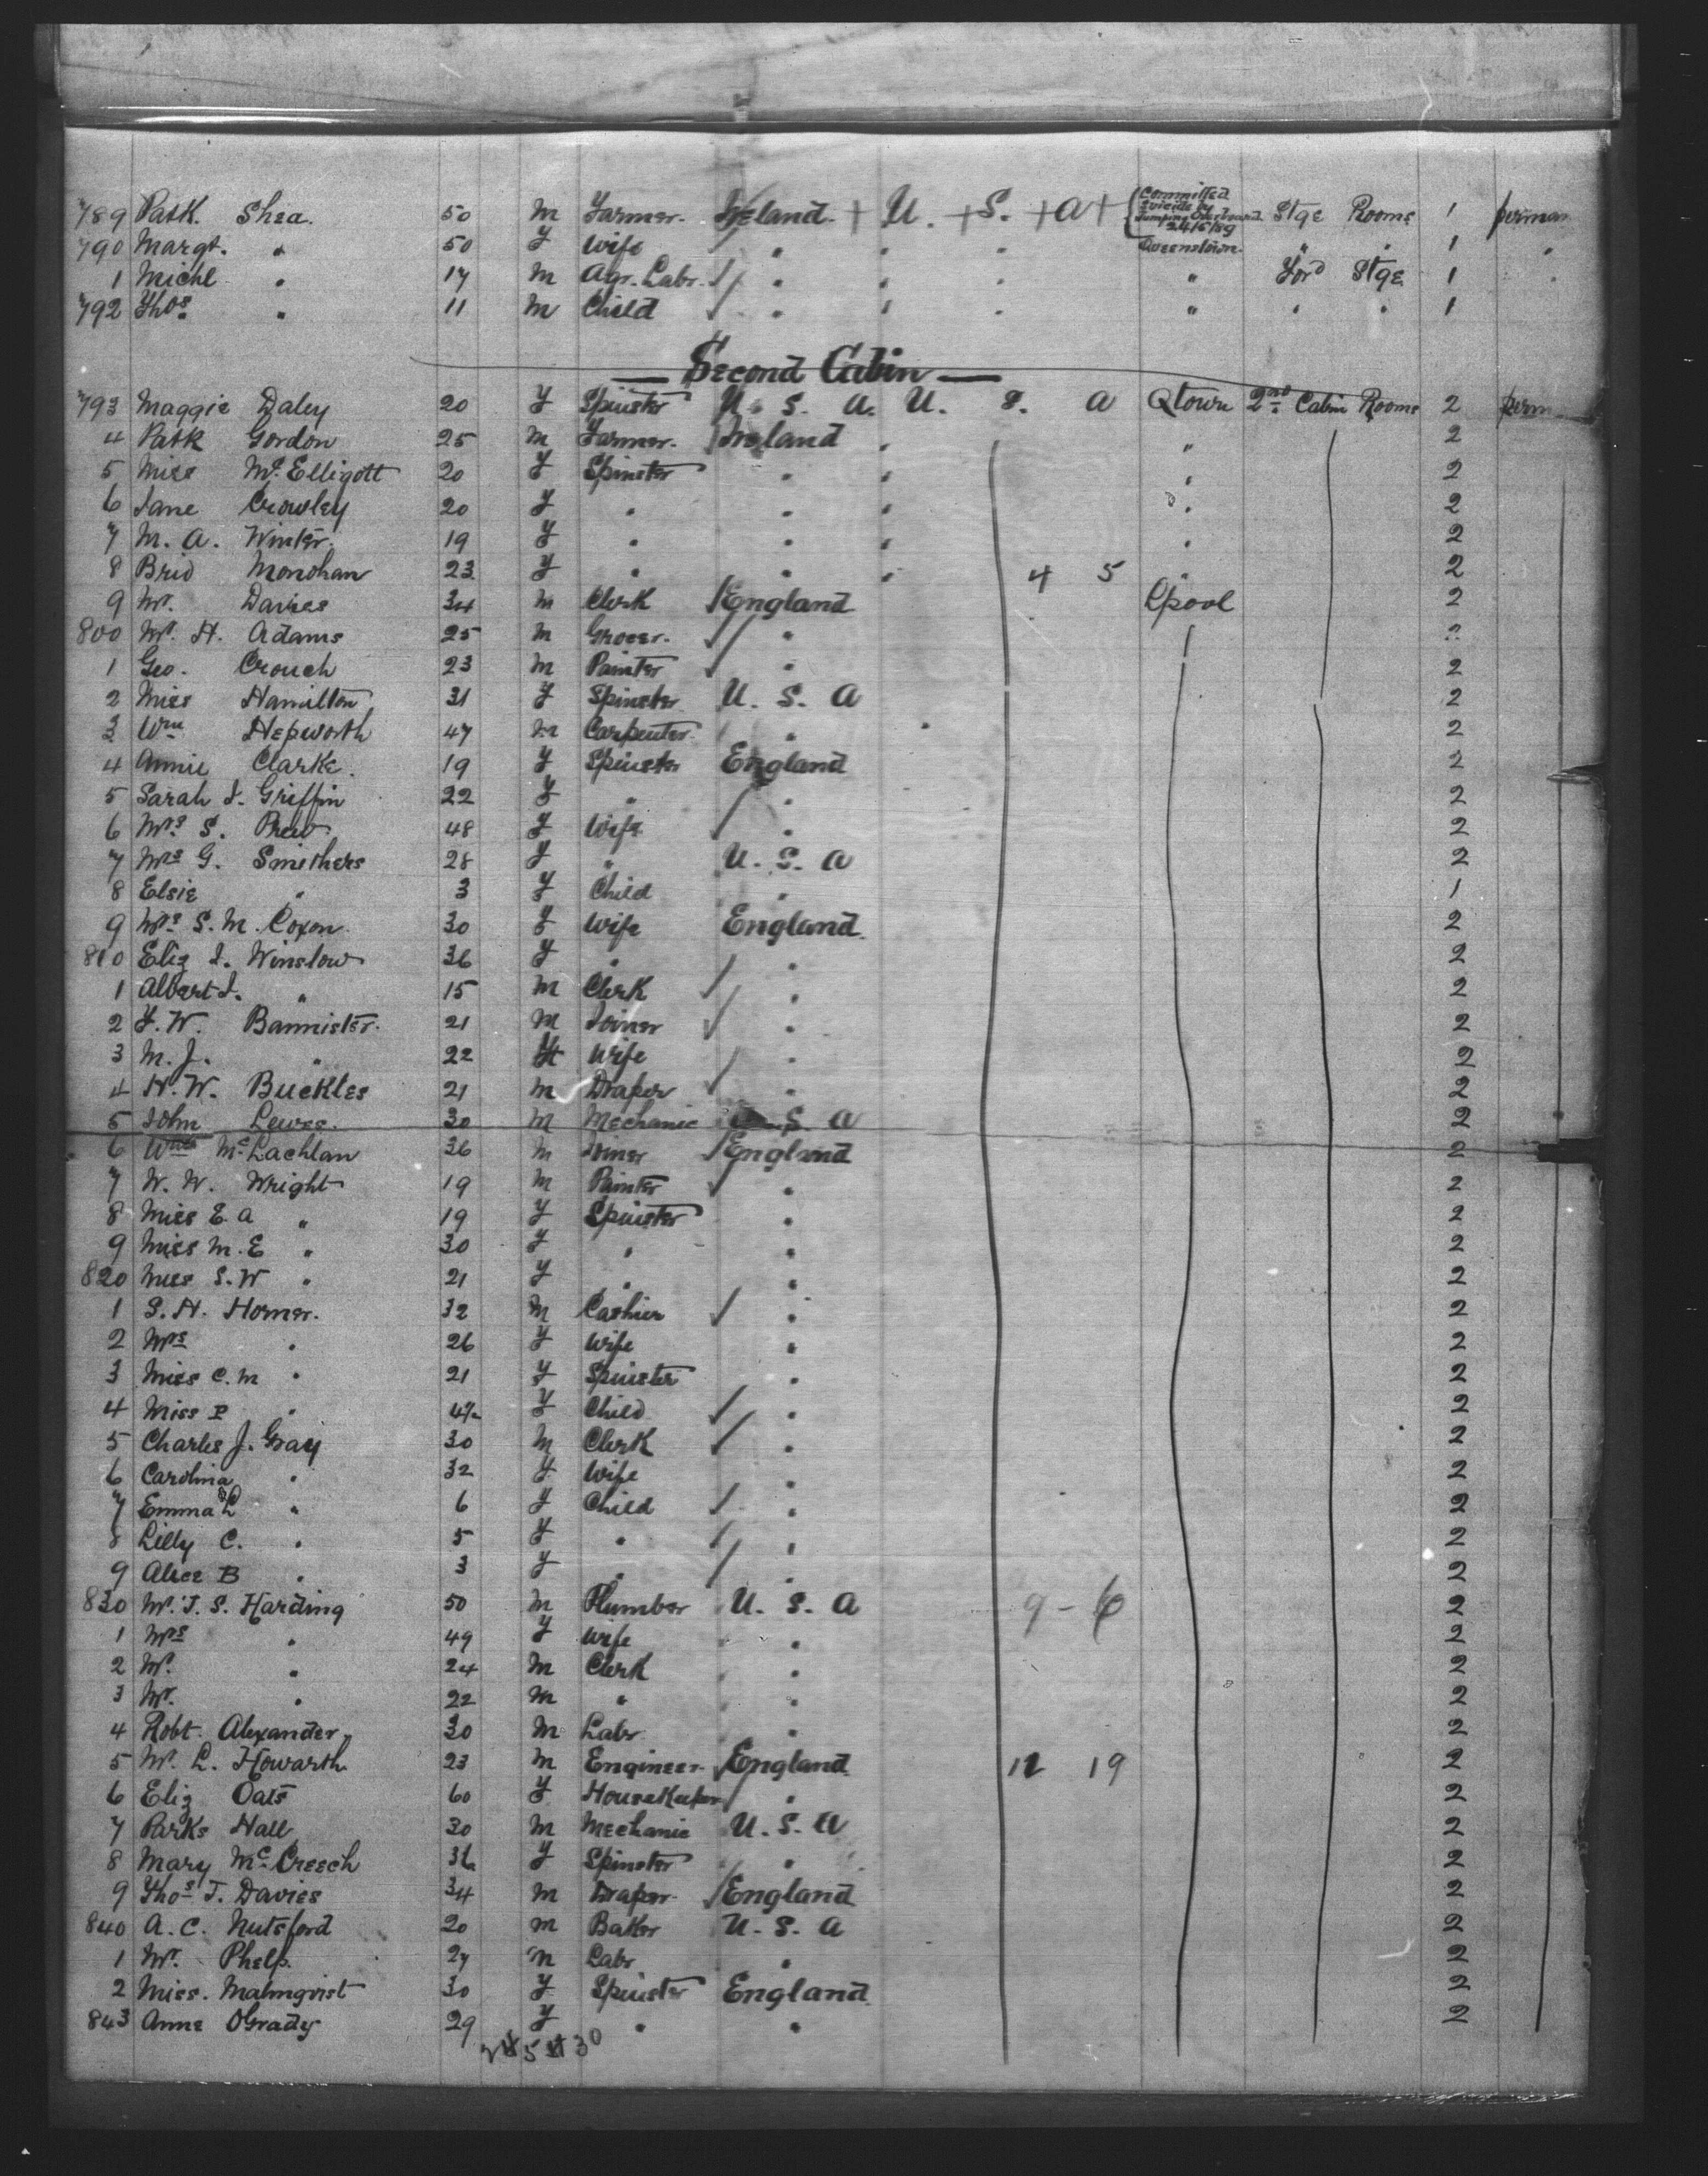 789 Patk. Shea. 50 m Farmer. Ireland + U. + S. + a + { Committed Suicide by Jumping Overboard 24/5/89 Stge Rooms 1 perman
790 Margt. " 50 F Wife " " " Queenstown. " " 1 "
1 Michl " 17 m Agr. Labr. " " " " Ford Stge 1 "
792 Thos " 11 m Child " " " " " " 1
Second Cabin
793 Maggie Daley 20 F Spinster U. S. A. U. S. a Qtown 2nd Cabin Rooms 2 perm
4 Patk Gordon 25 m Farmer. Ireland " " 2
5 Miss McElligott 20 F Spinster " " " 2
6 Jane Crowley 20 F " " " " 2
7 M. A. Winter. 19 F " " " " 2
8 Brid Monohan 23 F " " " 4 5 " 2
9 Mr. Davies 34 m Clerk England Lpool 2
800 Mr. H. Adams 25 m Grocer. " 2
1 Geo. Crouch 23 m Painter " 2
2 Miss Hamilton 31 F Spinster U. S. A 2
3 Wm Hepworth 47 m Carpenter " 2
4 Annie Clarke. 19 F Spinster England 2
5 Sarah J. Griffin 22 F " " 2
6 Mrs S. 48 F Wife " 2
7 Mrs G. Smithers 28 F " U. S. A 2
8 Elsie " 3 F Child " 1
9 Mrs S. M. Coxon 30 F Wife England. 2
810 Eliz J. Winslow 36 F " " 2
1 Albert J. " 15 m Clerk " 2
2 F. W. Bannister. 21 m Joiner " 2
3 M. J. " 22 F Wife " 2
4 H. W. Buckles 21 m Draper " 2
5 John Lewes. 30 m Mechanic U. S. a 2
6 Wm McLachlan 36 m Joiner England 2
7 W. W. Wright 19 m Painter " 2
8 Miss E. a " 19 F Spinster " 2
9 Miss M. E " 30 F " " 2
820 Miss S. W " 21 F " " 2
1 S. H. Homer. 32 m Cashier " 2
2 Mrs " 26 F Wife " 2
3 Miss C. m " 21 F Spinster " 2
4 Miss P " F Child " 2
5 Charles J. Gray 30 m Clerk " 2
6 Carolina " 32 F Wife " 2
7 Emma L " 6 F Child " 2
8 Lilly C. " 5 F " " 2
9 Alice B " 3 F " " 2
830 Mr. J. S. Harding 50 m Plumber U. S. a 9 - 6 2
1 Mrs " 49 F Wife " 2
2 Mr. " 24 m Clerk " 2
3 Mr. " 22 m " " 2
4 Robt. Alexander 30 m Labr " 2
5 Mr. L. Howarth 23 m Engineer England 12 19 2
6 Eliz Oats 60 F Housekeeper " 2
7 Parks Hall 30 m Mechanic U. S. a 2
8 Mary McCreech F Spinster " 2
9 Thos J. Davies 34 m Draper England 2
840 A. C. Nutsford 20 m Baker U. S. a 2
1 Mr. Phelp. 27 m Labr " 2
2 Miss. Malmqvist 30 F Spinster England. 2
843 Anne OGrady 29 F " " 2